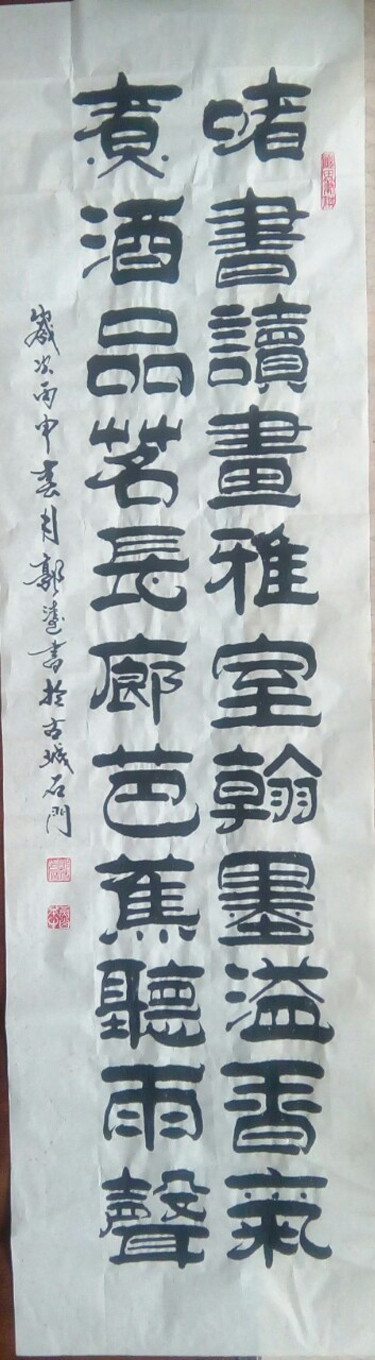 啫書讀畫雅室翰墨溢香氣
煮酒品茗長廊芭蕉聽雨聲
歲次丙申春月郭達書於古城石門